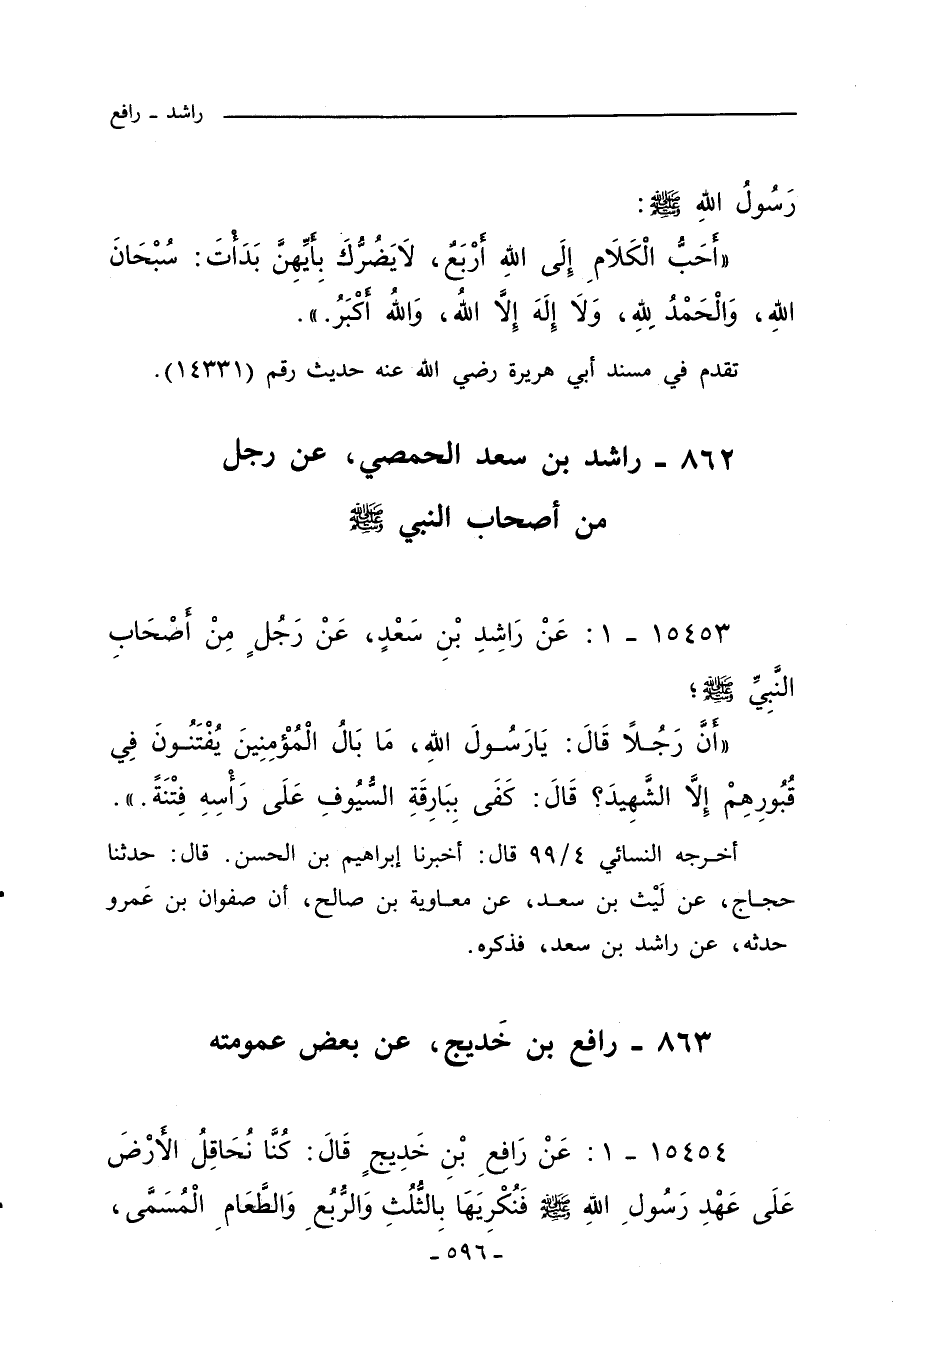 راشد ـ رافع
رَسُولُ اللهِ ﷺ :
«أَحَبُّ الْكَلَامِ إِلَى اللهِ أَرْبَعٌ، لَايَضُرُّكَ بِأَيِّهِنَّ بَدَأْتَ: سُبْحَانَ
اللهِ، وَالْحَمْدُ لِلهِ، وَلَا إِلَهَ إِلَّا اللهُ، وَاللهُ أَكْبَرُ.».
تقدم في مسند أبي هريرة رضي الله عنه حديث رقم (١٤٣٣١).
٨٦٢ ـ راشد بن سعد الحمصي، عن رجل
من أصحاب النبي ﷺ
١٥٤٥٣ ـ ١ : عَنْ رَاشِدِ بْنِ سَعْدٍ، عَنْ رَجُلٍ مِنْ أَصْحَابِ
النَّبِيِّ ﷺ؛
«أَنَّ رَجُلاً قَالَ: يَارَسُولَ اللهِ، مَا بَالُ الْمُؤْمِنِينَ يُفْتَنُونَ فِي
قُبُورِهِمْ إِلَّا الشَّهِيدَ؟ قَالَ: كَفَى بِبَارِقَةِ السُّيُوفِ عَلَى رَأْسِهِ فِتْنَةً.».
أخرجه النسائي ٩٩/٤ قال: أخبرنا إبراهيم بن الحسن. قال: حدثنا
حجاج، عن لَيْث بن سعد، عن معاوية بن صالح، أن صفوان بن عَمرو
حدثه، عن راشد بن سعد، فذكره.
٨٦٣ ـ رافع بن خَديج، عن بعض عمومته
١٥٤٥٤ ـ ١ : عَنْ رَافِعِ بْنِ خَدِيجٍ قَالَ: كُنَّا نُحَاقِلُ الأَرْضَ
عَلَى عَهْدِ رَسُولِ اللهِ ﷺ فَنُكْرِيَهَا بِالثُّلُثِ وَالرُّبُعِ وَالطَّعَامِ الْمُسَمَّى،
ـ ٥٩٦ ـ